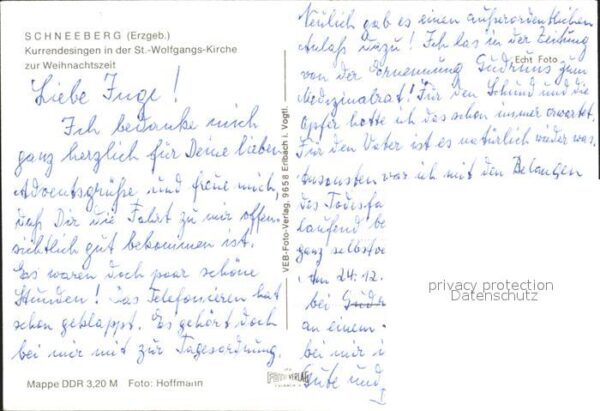 SCHNEEBERG (Erzgeb.)
Kurrendesingen in der St.-Wolfgangs-Kirche
zur Weihnachtszeit
Liebe Inge!
Ich bedanke mich
ganz herzlich für Deine lieben
Adventsgrüße und freue mich,
daß Dir die Fahrt zu mir offen-
sichtlich gut bekommen ist.
Es waren doch paar schöne
Stunden! Das Telefonieren hat
schon geklappt. Es gehört doch
bei mir mit zur Tagesordnung.
Mappe DDR 3,20 M Foto: Hoffmann
VEB-Foto-Verlag, 9658 Erlbach i. Vogtl.
Foto VERLAG
Neulich gab es einen außerordentlichen
Anlaß dazu! Ich las in der Zeitung
Echt Foto
von der Ernennung Gudruns zum
Medizinalrat! Für den und die
Opfer hatte ich das schon immer erwartet.
Für den Vater ist es natürlich wieder was.
Ansonsten war ich mit den Belangen
des Todesfa
laufend be
ganz selbstve
Am 24.12.
bei Gudr
an einem
bei mir i
Gute und
privacy protection
Datenschutz